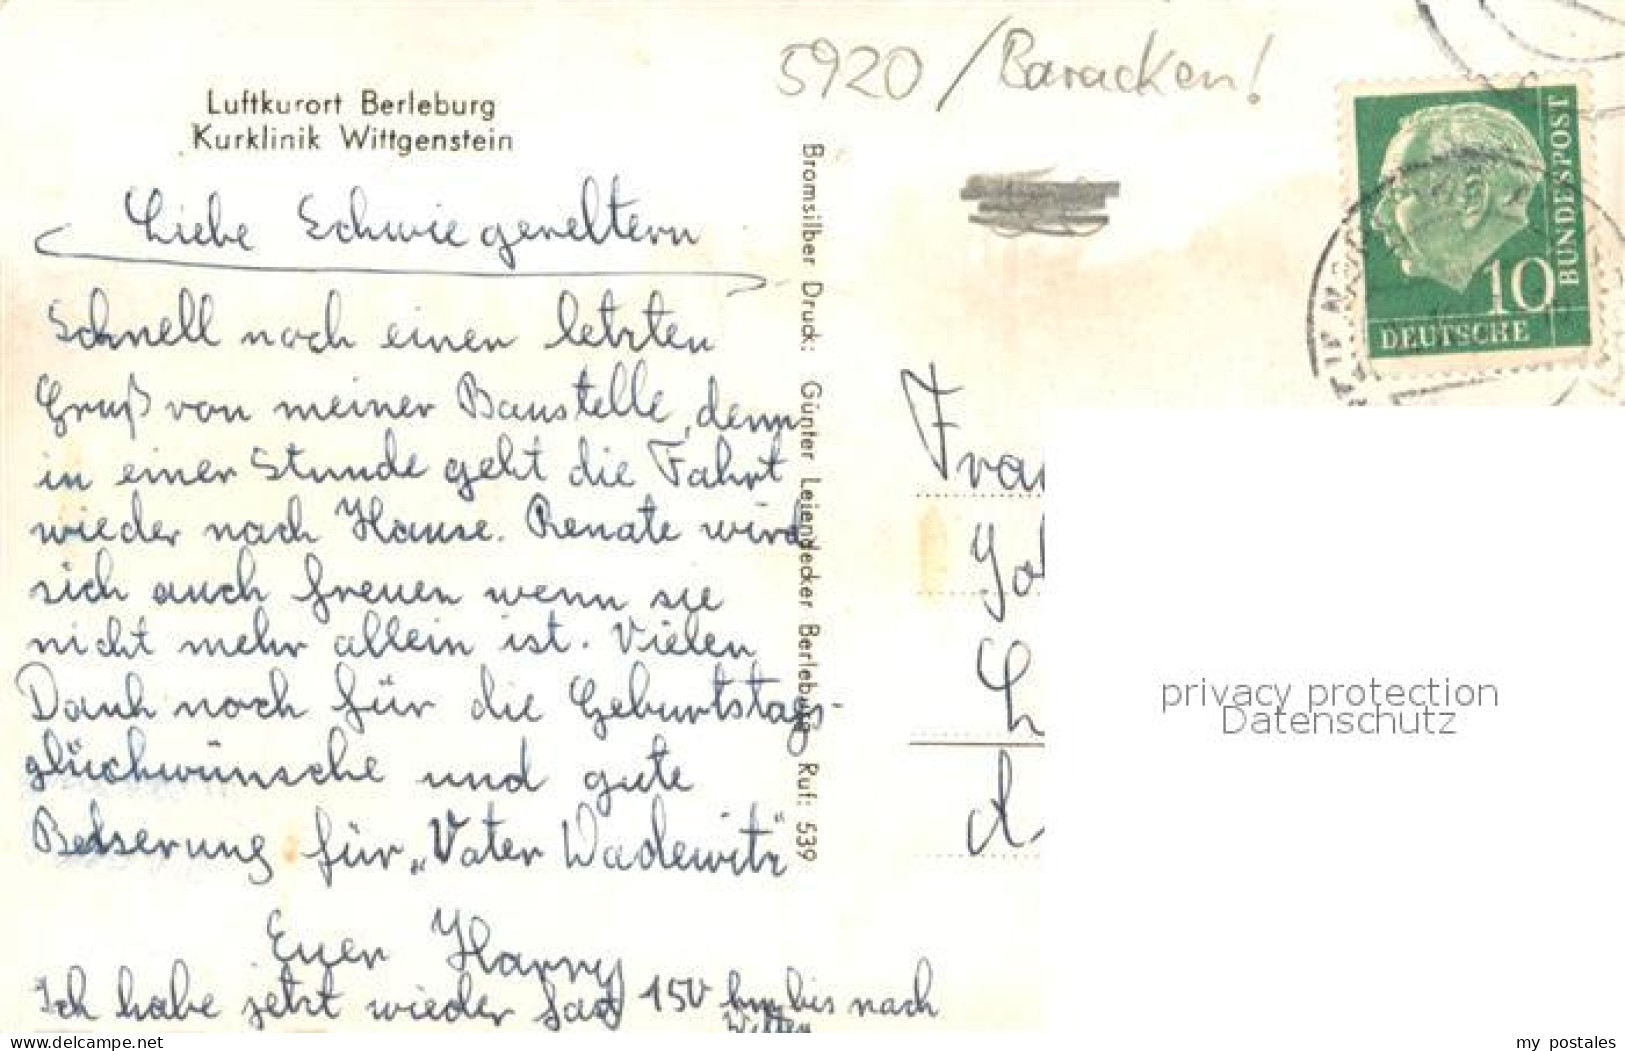 5920 / Baracken!
Luftkurort Berleburg
Kurklinik Wittgenstein
Liebe Schwiegereltern
Schnell noch einen letzten
Gruß von meiner Baustelle, denn
in einer Stunde geht die Fahrt
wieder nach Hause. Renate wird
sich auch freuen wenn sie
nicht mehr allein ist. Vielen
Dank noch für die Geburtstags-
glückwünsche und gute
Besserung für „Vater Wadewitz"
Euer Harry
Ich habe jetzt wieder fast 150 km bis nach
Witten
Bromsilber Druck: Günter Leiendecker Berleburg Ruf: 539
BUNDESPOST
10
DEUTSCHE
privacy protection
Datenschutz
www.delcampe.net
my postales